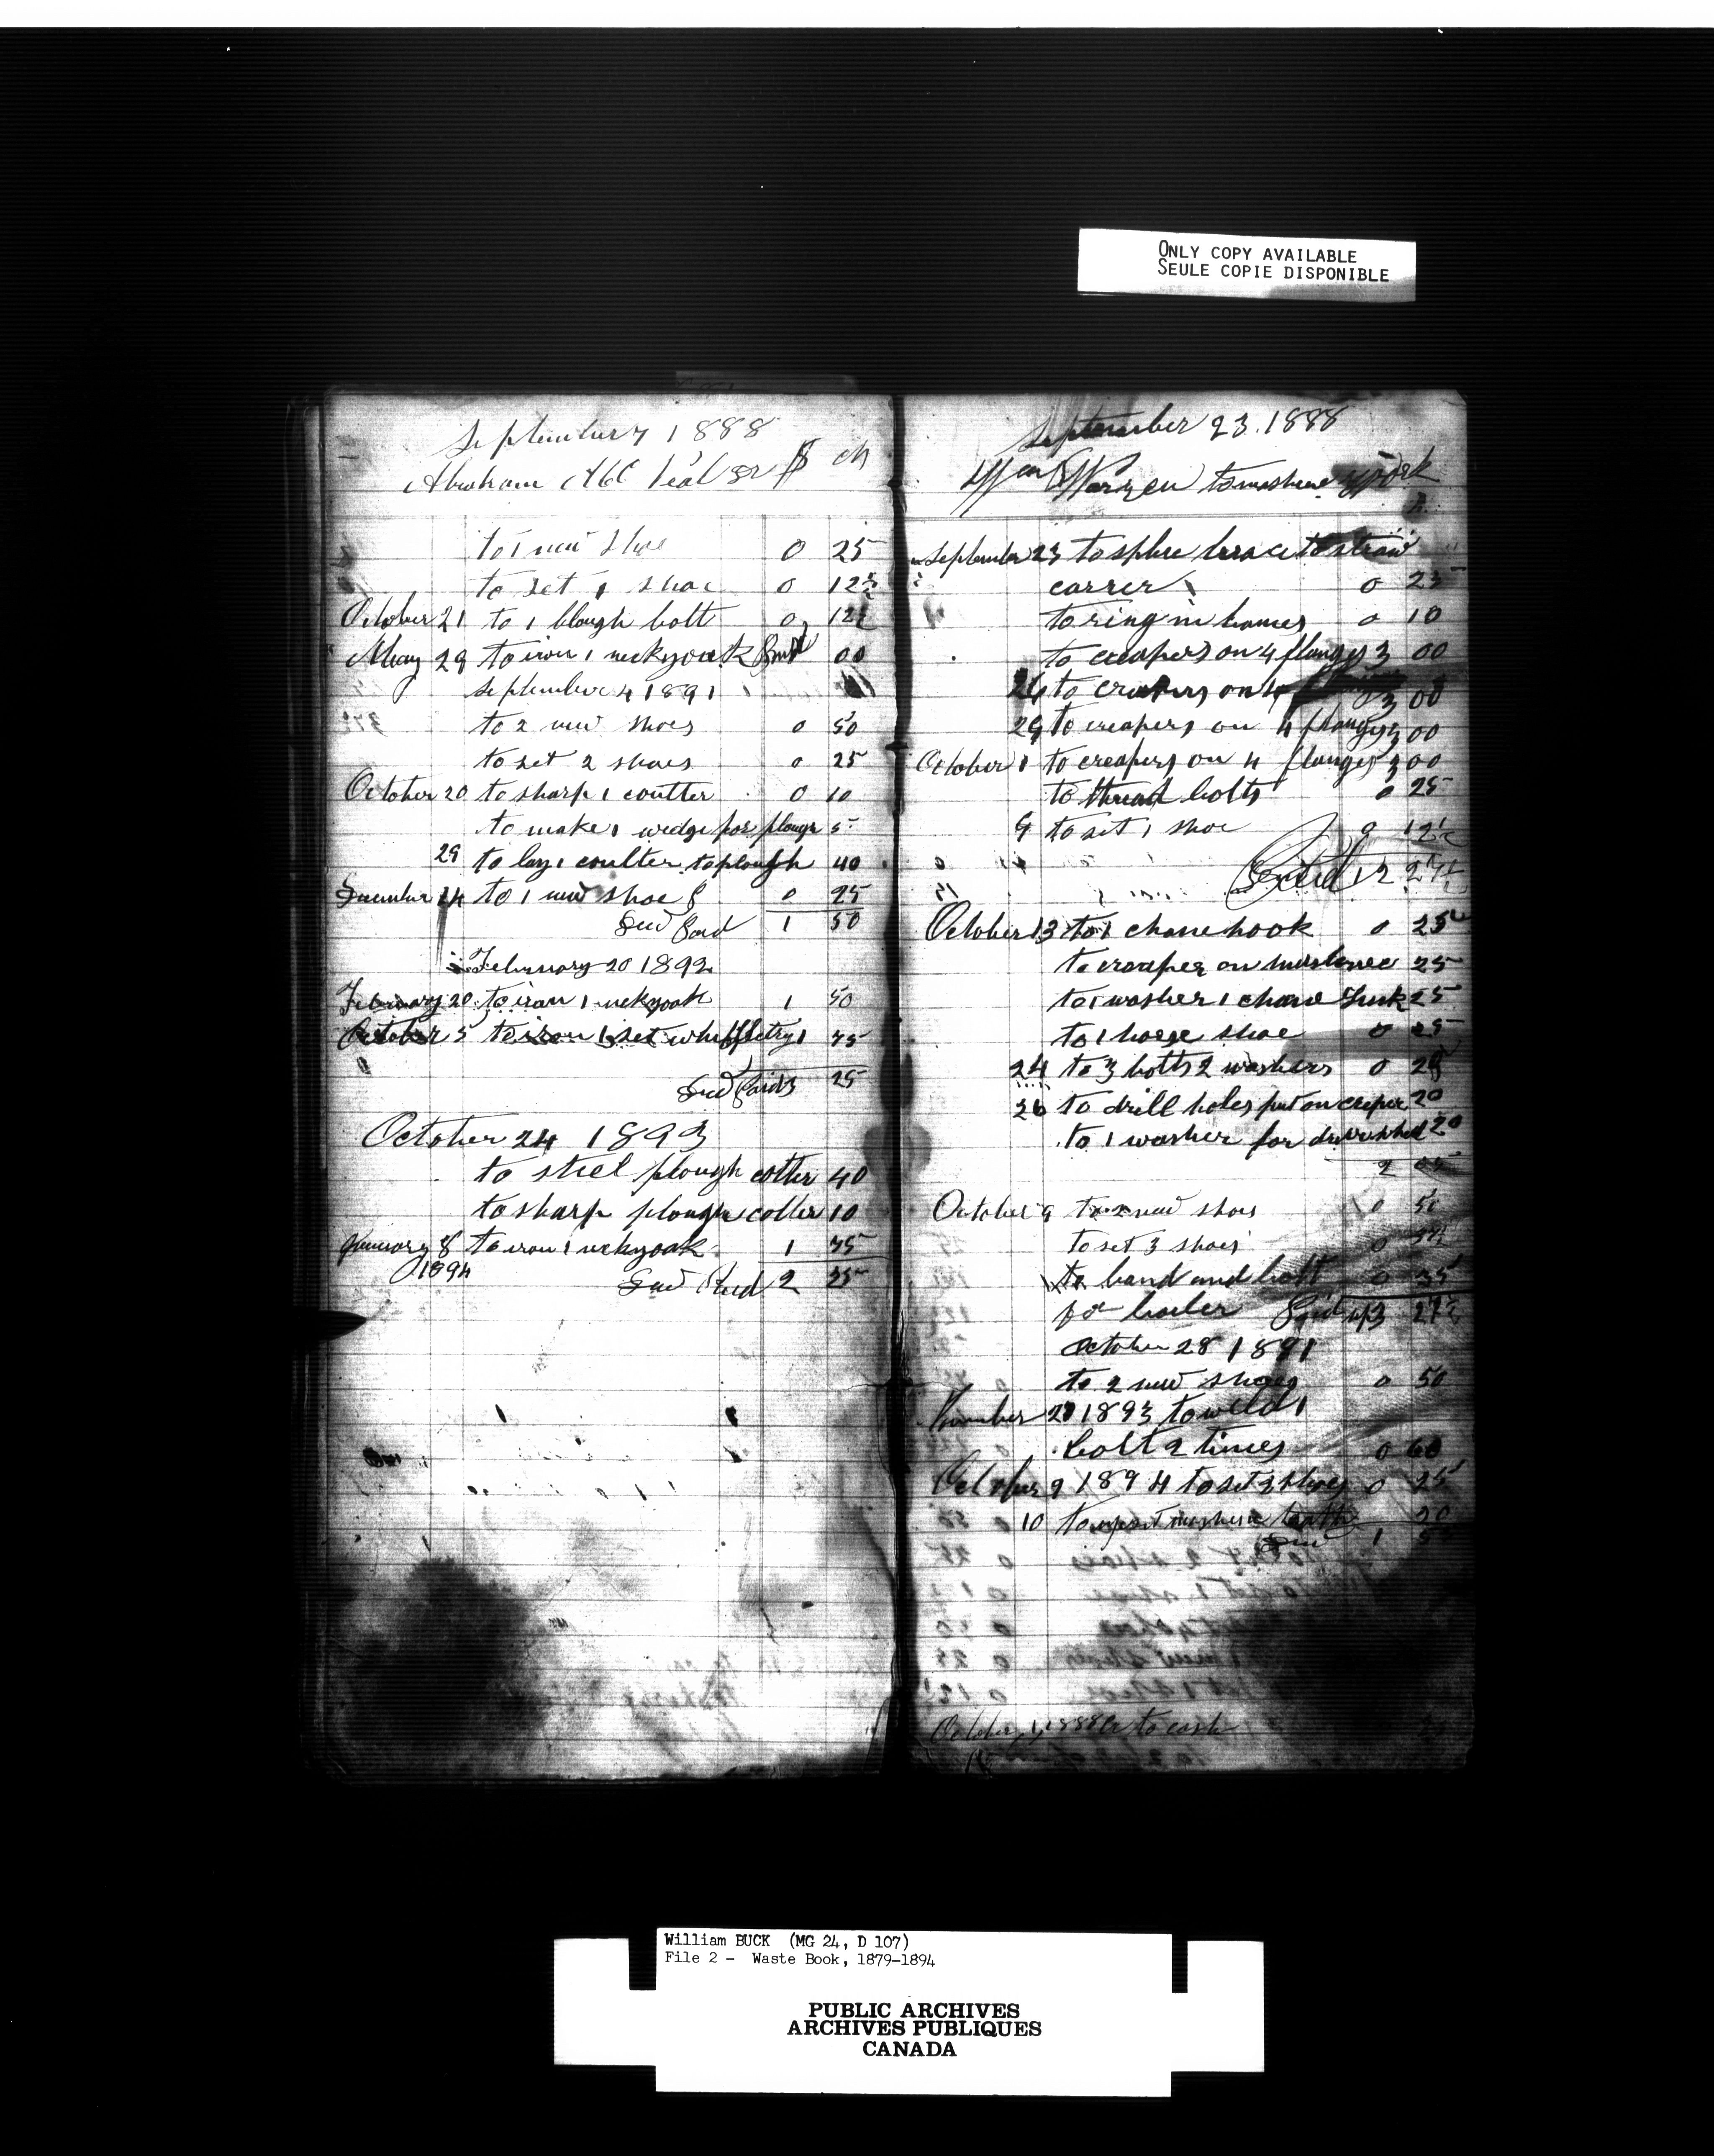 ONLY COPY AVAILABLE
SEULE COPIE DISPONIBLE
September 7 1888
Abraham $ cts
to 1 new shoe 0 25
to set 1 shoe 0 12½
October 21 to 1 blough bolt 0 12½
May 29 to iron 1 neckyoak 00
September 4 1891
to 2 new shoes 0 50
to set 2 shoes 0 25
October 20 to sharp 1 coutter 0 10
to make 1 wedge for plough 5
29 to lay 1 coulter to plough 40
December 24 to 1 new shoe 0 25
1 50
February 20 1892
February 20 to iron 1 nekyoak 1 50
October 5 to iron 1 set 1 75
25
October 24 1893
to steel plough cotter 40
to sharp plough cotter 10
January 8 to iron 1 nekyoak 1 75
1894
2 25
September 23. 1888
Wm Warren to mashine work
September 23 to splice brace to straw
carrer 0 25
to ring in hames 0 10
to creapers on 4 flanges 3 00
26 to creapers on 4 3 00
29 to creapers on 4 flanges 3 00
October 1 to creapers on 4 flanges 3 00
to thread bolts 0 25
9 to set 1 shoe 0 12½
12 27½
October 13 to 1 chane hook 0 25
to creaper on 25
to 1 washer 1 chane 25
to 1 horse shoe 0 25
24 to 3 bolts 2 washers 0 25
26 to drill holes put on creper 20
to 1 washer for 20
2 05
October 9 to 2 new shoes 0 50
to set 3 shoes 0 37½
to band and bolt 0 35
for boiler 27½
October 28 1891
to 2 new shoes 0 50
November 27 1893 to weld 1
bolt 2 times 0 60
October 9 1894 to set 3 shoes 0 25
10 to upset mashine teath 20
1
October 1, 1888 Cr to cash
William BUCK (MG 24, D 107)
File 2 - Waste Book, 1879-1894
PUBLIC ARCHIVES
ARCHIVES PUBLIQUES
CANADA